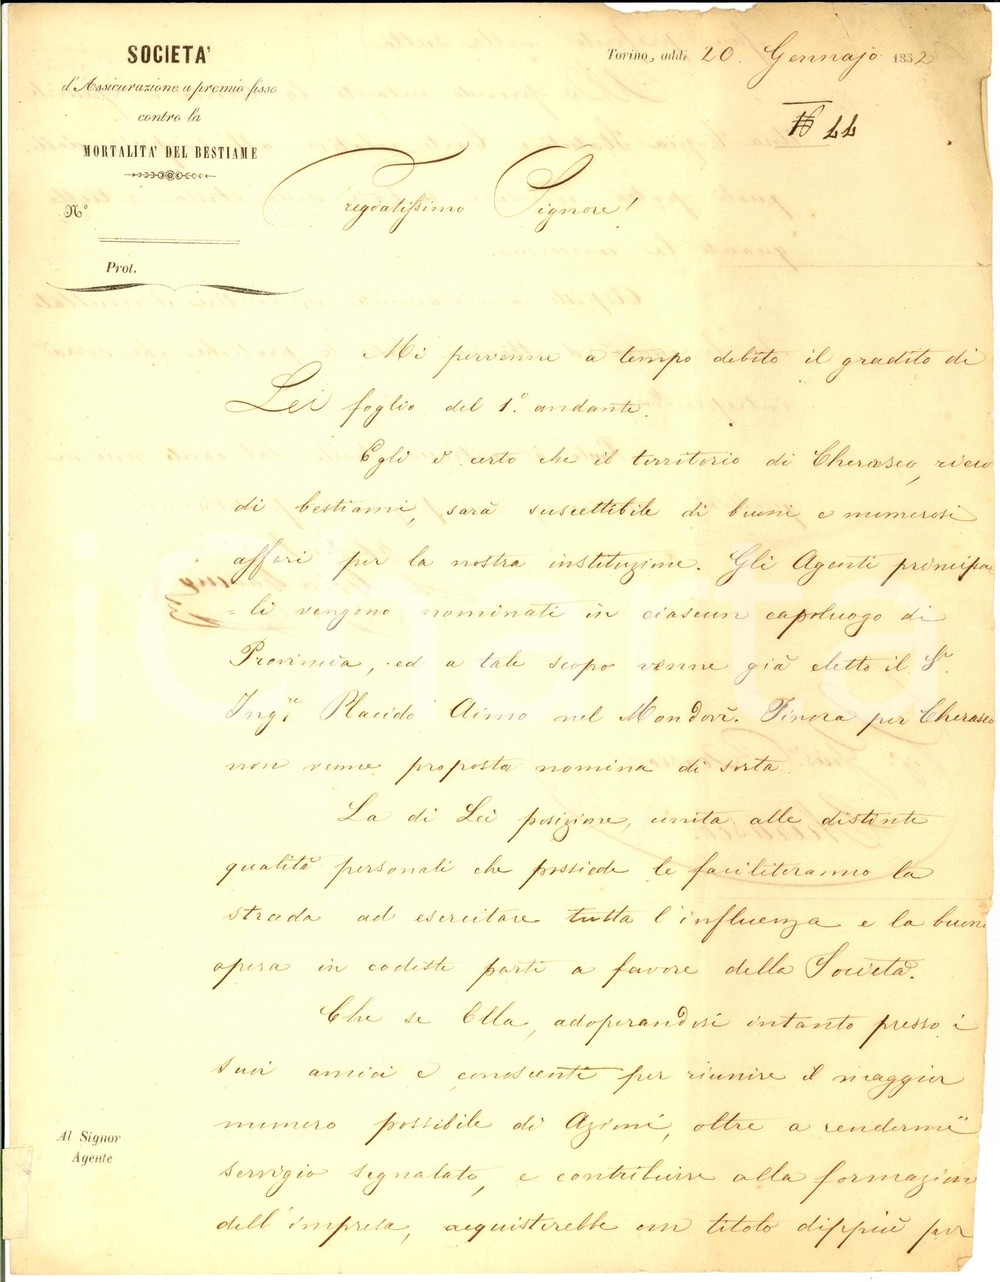 SOCIETA'
d'Assicurazione a premio fisso
contro la
MORTALITA' DEL BESTIAME
N.°
Prot.
Torino, addì 20. Gennajo 1852
44
Pregiatissimo Signore!
Mi pervenne a tempo debito il gradito di
Lei foglio del 1.° andante.
Egli è certo che il territorio di Cherasco, ricco
di bestiami, sarà suscettibile di buoni e numerosi
affari per la nostra instituzione. Gli Agenti principa
=li vengono nominati in ciascun capoluogo di
Provincia, ed a tale scopo venne già eletto il S.r
Ing.re Placido Aimo nel Mondovì. Finora per Cherasco
non venne proposta nomina di sorta
La di Lei posizione, unita alle distinte
qualità personali che possiede le faciliteranno la
strada ad esercitare tutta l'influenza e la buona
opera in codeste parti a favore della Società.
Che se Ella, adoperandosi intanto presso i
suoi amici e conoscenti per riunire il maggior
numero possibile di Azioni, oltre a rendermi
servigio segnalato, e contribuire alla formazione
dell'impresa, acquisterebbe un titolo dippiù per
Al Signor
Agente